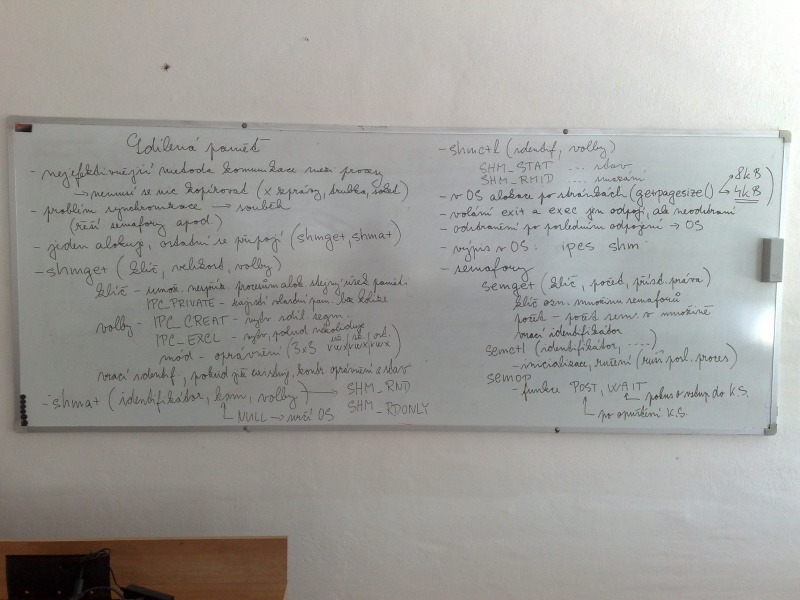 Sdílená paměť
- nejefektivnější metoda komunikace mezi procesy
→ nemusí se nic kopírovat (x zprávy, trubka, soket)
- problém synchronizace → souběh
(řeší semafory apod.)
- jeden alokuji, ostatní se připojí (shmget, shmat)
- shmget (klíč, velikost, volby)
klíč - umož. nepříb. procesům alok. stejný úsek paměti
IPC_PRIVATE - každý vlastní pam. bez kolize
volby - IPC_CREAT - vytv. sdíl. segm.
IPC_EXCL - vytv., pokud neexistuje
mod - oprávnění (3x3 rwx/rwx/rwx)
vrací identif, pokud již existuj, kontr. oprávnění a stav
- shmat (identifikátor, kam, volby) → SHM_RND
SHM_RDONLY
NULL → určí OS
- shmctl (identif, volby)
SHM_STAT ... stav
SHM_RMID ....
- v OS alokace po stránkách (getpagesize() 8kB
4kB)
- volání exit a exec jen odpojí, ale neodstraní
- odstranění po posledním odpojení → OS
- výpis v OS. ipcs shm
- semafory
semget (klíč, počet, přísl. práva)
klíč ozn. množinu semaforů
počet - počet sem. v množině
vrací identifikátor
semctl (identifikátor, ....)
- inicializace, rušení (ruší posl. proces)
semop
- funkce POST, WAIT
pokus o vstup do K.S.
po opuštění K.S.